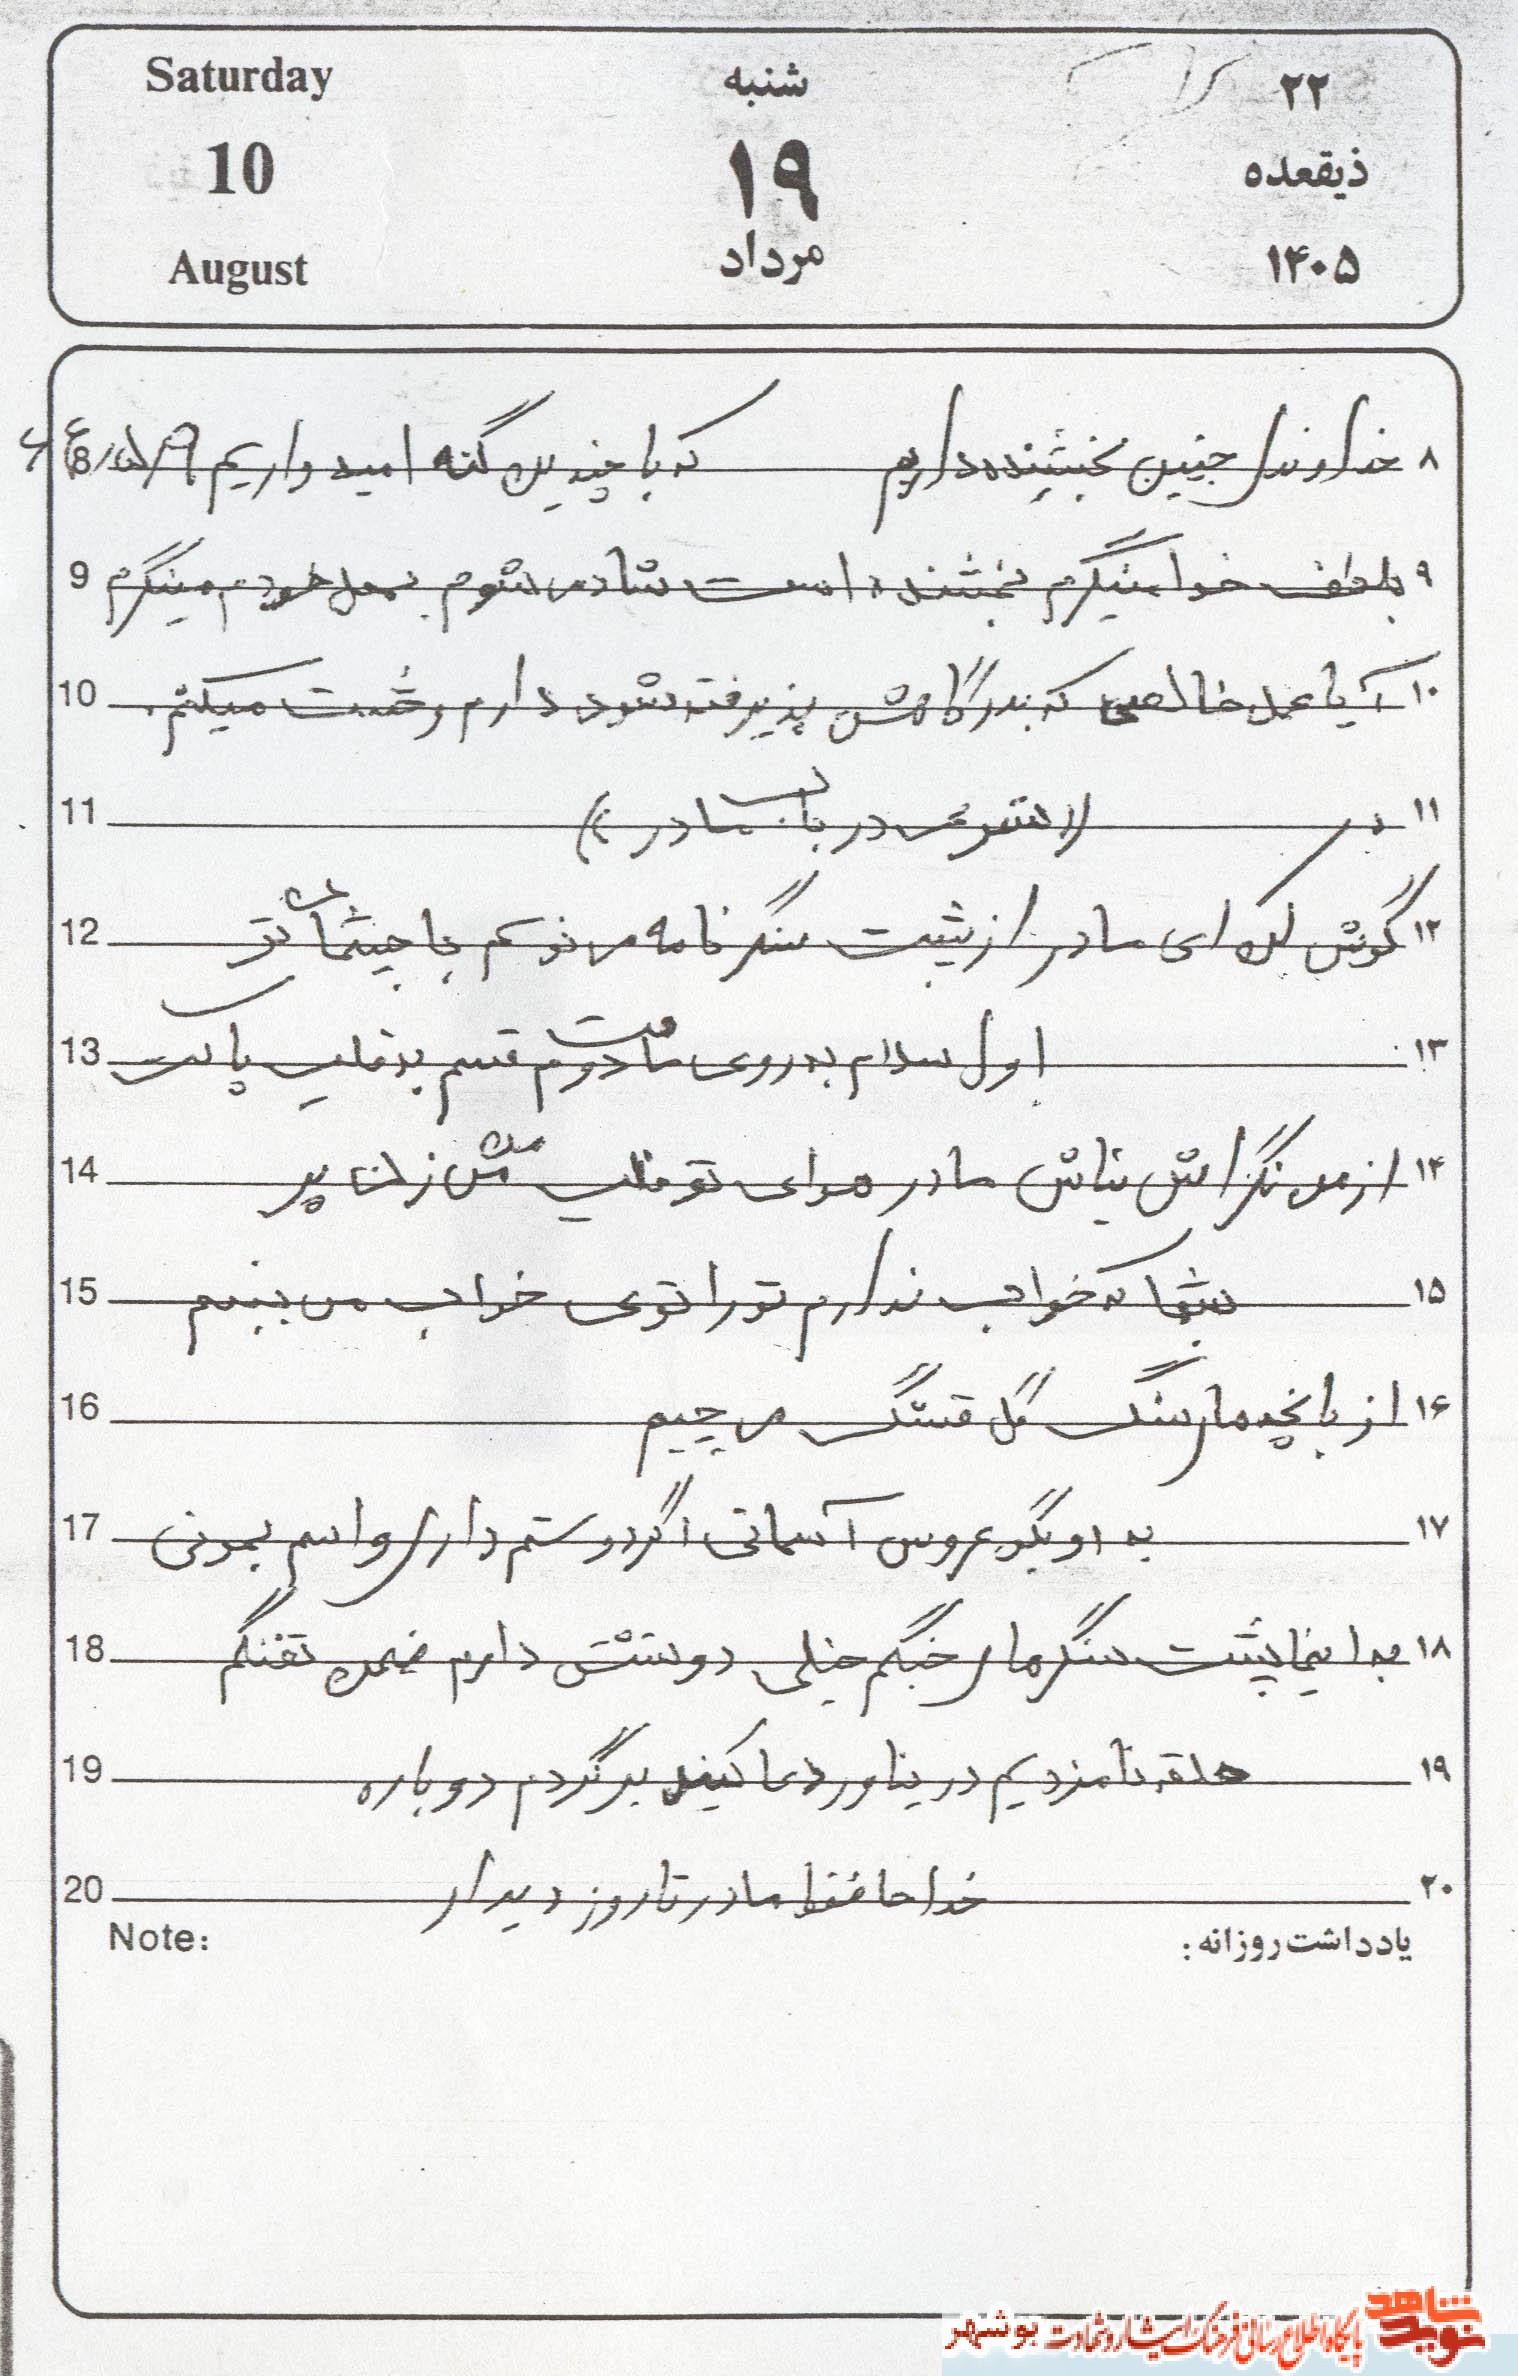 Saturday شنبه ۲۲
10 ۱۹ ذیقعده
August مرداد ۱۴۰۵
۸ خداوندا چنین بخشنده داریم که با چندین گنه امیدواریم 8
۹ بلطف خدا مینگرم بخشنده است شاد می شوم بعمل خودم مینگرم 9
۱۰ آیا عمل خالصی که بدرگاهش پذیرفته شود دارم وحشت میکنم. 10
۱۱ ((شعری در باب مادر)) 11
۱۲ گوش کن ای مادر از پشت سنگر نامه می نویسم با چشمان تو 12
۱۳ اول سلام به روی ماهت دوم قسم به قلب پاکت 13
۱۴ از من نگران نباش مادر هوای تو قلب من زند پر 14
۱۵ شبها که خواب ندارم تو را توی خواب می بینم 15
۱۶ از باغچه های سنگر گل قشنگ می چینم 16
۱۷ به او بگو عروس آسمانی اگر دوستم داری واسم بمونی 17
۱۸ به اینجا پشت سنگرهای جنگم خیلی دوستش دارم تفنگم 18
۱۹ حلقه نامزدیم در بیاور دعا کنید برگردم دوباره 19
۲۰ خداحافظ مادر تا روز دیدار 20
یادداشت روزانه : Note:
نوید شاهد پایگاه اطلاع رسانی فرهنگ ایثار و شهادت بوشهر